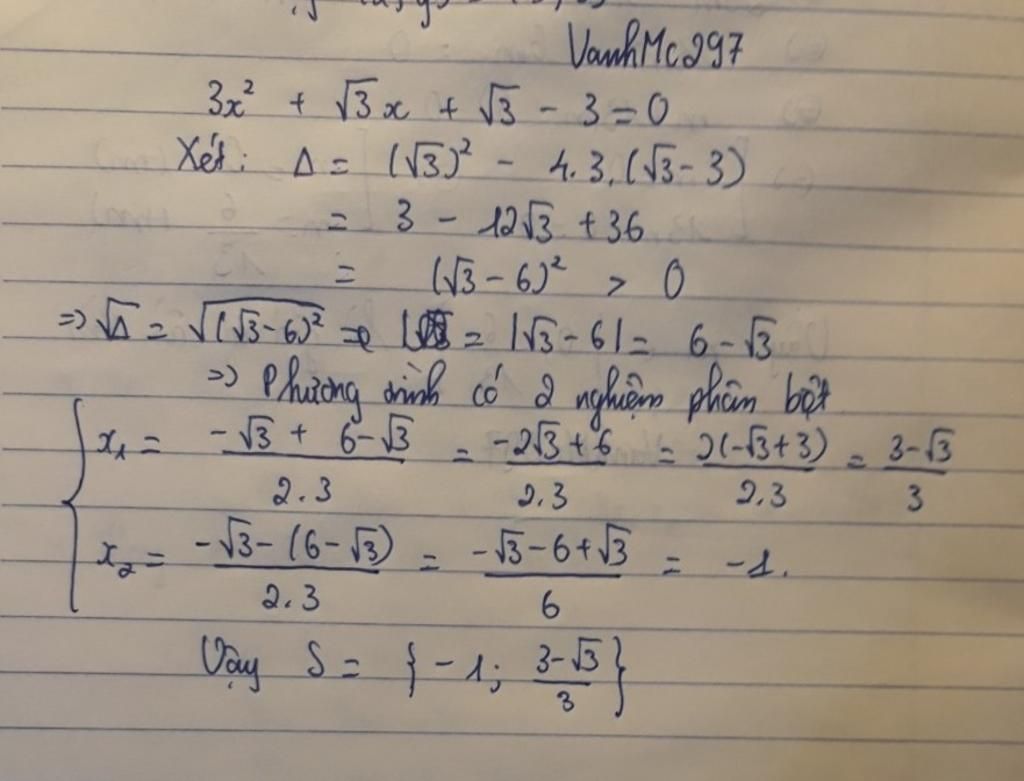 VanhMc297
3x² + √3x + √3 - 3 = 0
Xét: Δ = (√3)² - 4.3.(√3 - 3)
= 3 - 12√3 + 36
= (√3 - 6)² > 0
=> √Δ = √(√3-6)² = |√3 - 6| = 6 - √3
=> Phương trình có 2 nghiệm phân biệt
x₁ = (-√3 + 6 - √3)/(2.3) = (-2√3 + 6)/(2.3) = 2(-√3+3)/(2.3) = (3-√3)/3
x₂ = (-√3 - (6 - √3))/(2.3) = (-√3 - 6 + √3)/6 = -1.
Vậy S = {-1; (3-√3)/3}